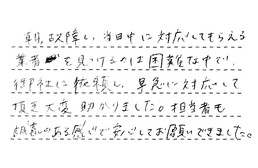 朝、故障し、当日中に対応してもらえる
業者を見つけるのは困難な中で、
御社に依頼し、早急に対応して
頂き大変助かりました。担当者も
清潔感のある感じで安心してお願いできました。